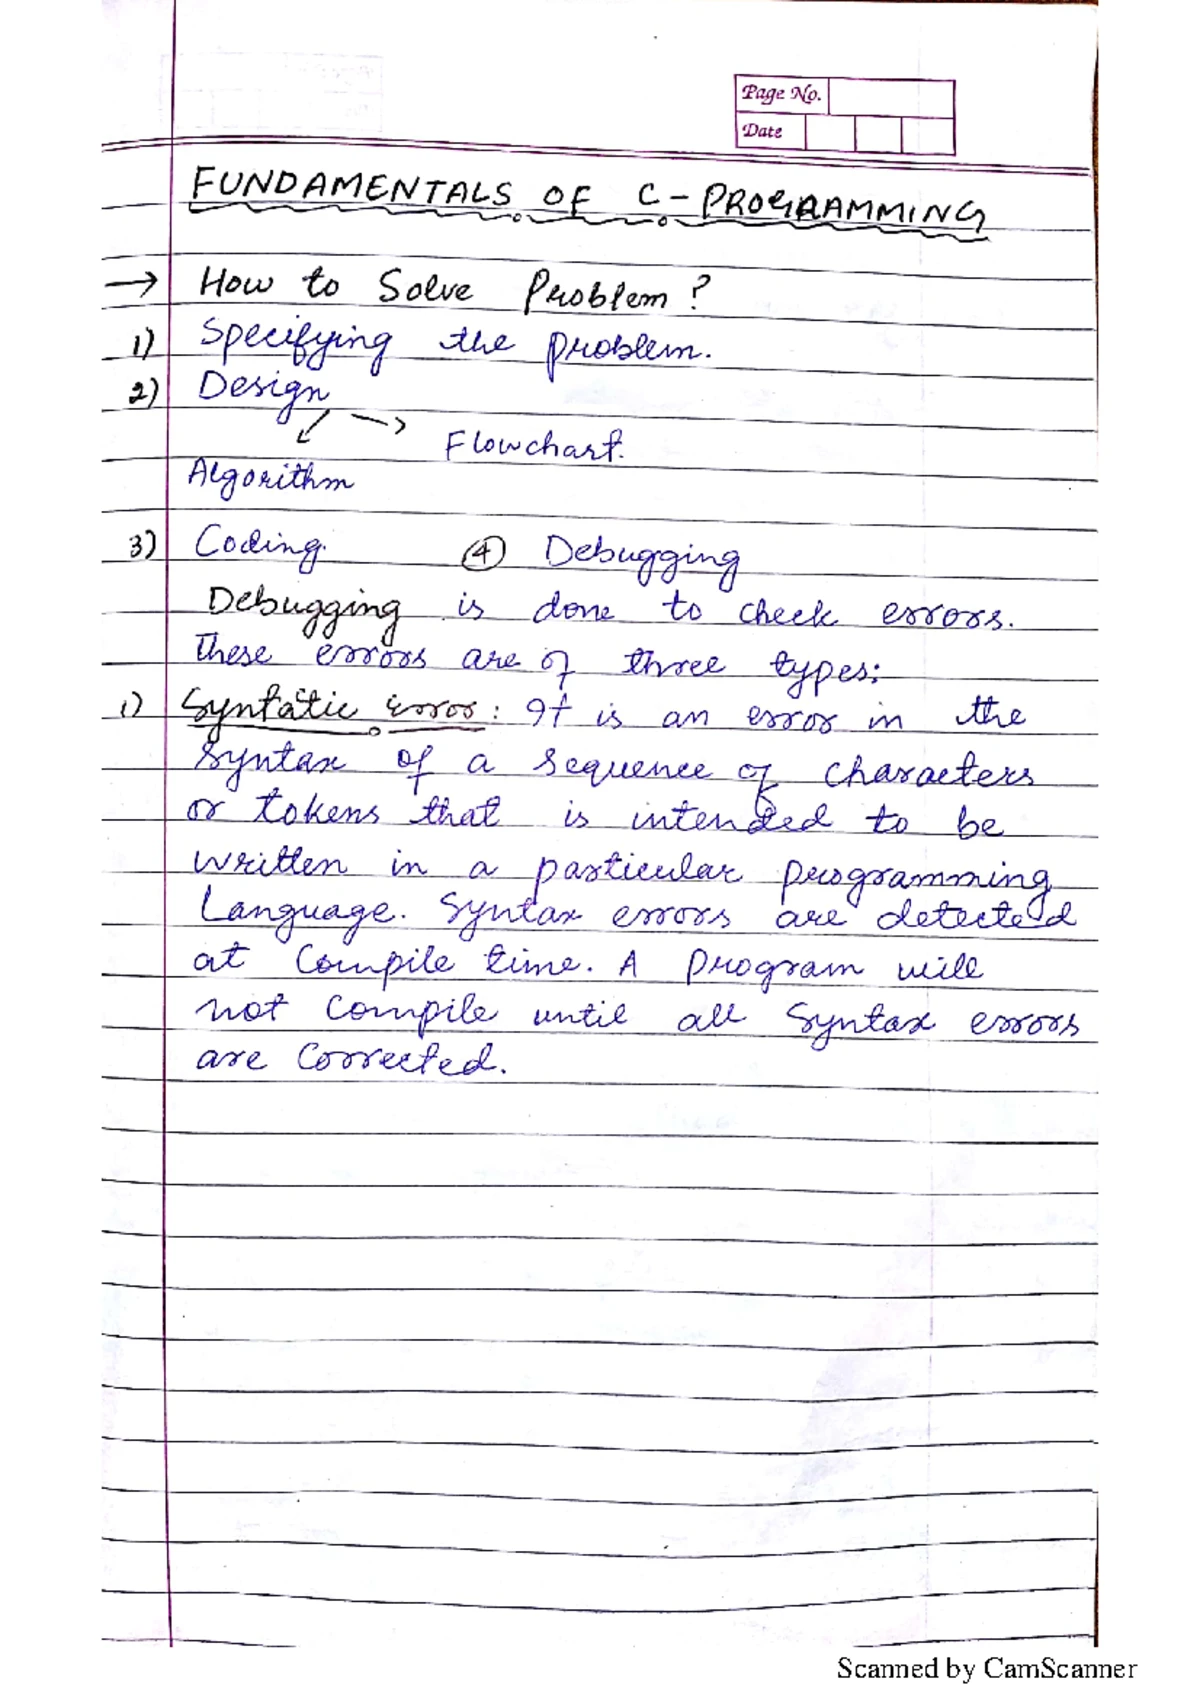 Page No.
Date
FUNDAMENTALS OF C-PROGRAMMING
→ How to Solve Problem?
1) Specifying the problem.
2) Design
Flowchart.
Algorithm
3) Coding. ④ Debugging
Debugging is done to check errors.
These errors are of three types:
i) Syntatic error: It is an error in the
Syntax of a sequence of characters
or tokens that is intended to be
written in a particular programming
Language. Syntax errors are detected
at Compile time. A program will
not Compile until all Syntax errors
are Corrected.
Scanned by CamScanner